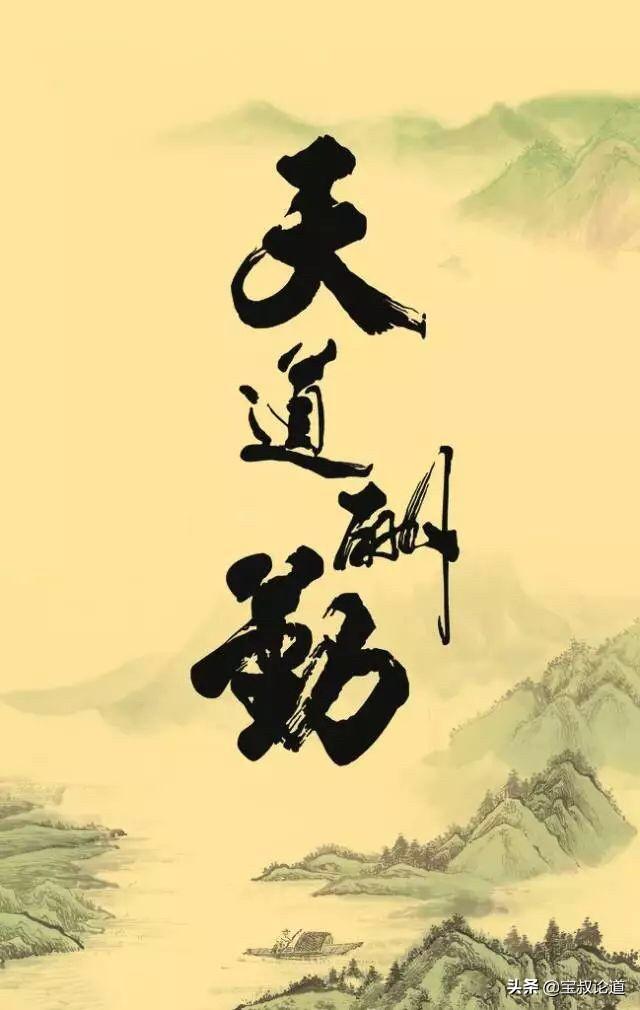 天道酬勤
头条 @宝叔论道